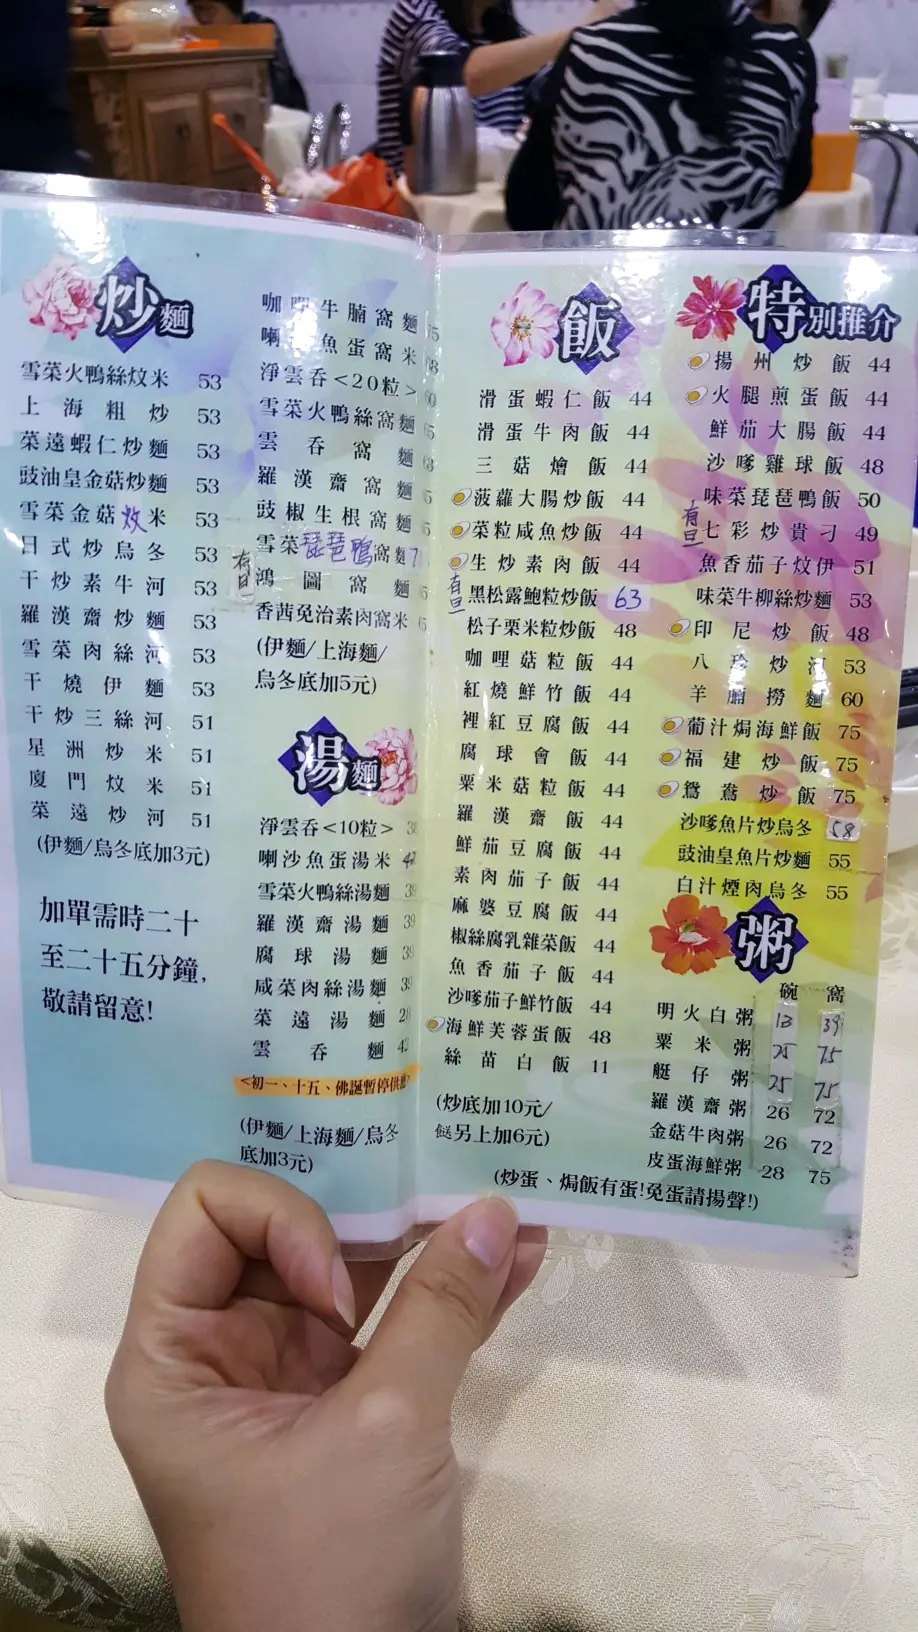 炒麵
雪菜火鴨絲炆米 53
上海粗炒 53
菜遠蝦仁炒麵 53
豉油皇金菇炒麵 53
雪菜金菇炆米 53
日式炒烏冬 53
干炒素牛河 53
羅漢齋炒麵 53
雪菜肉絲河 53
干燒伊麵 53
干炒三絲河 51
星洲炒米 51
廈門炆米 51
菜遠炒河 51
(伊麵/烏冬底加3元)
加單需時二十
至二十五分鐘,
敬請留意!
咖哩牛腩窩麵
喇沙魚蛋窩米
淨雲吞<20粒>
雪菜火鴨絲窩麵
雲吞窩麵
羅漢齋窩麵
豉椒生根窩麵
雪菜琵琶鴨窩麵
有旦 鴻圖窩麵
香茜免治素肉窩米
(伊麵/上海麵/
烏冬底加5元)
湯麵
淨雲吞<10粒>
喇沙魚蛋湯米
雪菜火鴨絲湯麵
羅漢齋湯麵
腐球湯麵
咸菜肉絲湯麵
菜遠湯麵
雲吞麵
<初一、十五、佛誕暫停供應>
(伊麵/上海麵/烏冬
底加3元)
飯
滑蛋蝦仁飯 44
滑蛋牛肉飯 44
三菇燴飯 44
菠蘿大腸炒飯 44
菜粒咸魚炒飯 44
生炒素肉飯 44
有旦 黑松露鮑粒炒飯 63
松子粟米粒炒飯 48
咖哩菇粒飯 44
紅燒鮮竹飯 44
裡紅豆腐飯 44
腐球會飯 44
粟米菇粒飯 44
羅漢齋飯 44
鮮茄豆腐飯 44
素肉茄子飯 44
麻婆豆腐飯 44
椒絲腐乳雜菜飯 44
魚香茄子飯 44
沙嗲茄子鮮竹飯 44
海鮮芙蓉蛋飯 48
絲苗白飯 11
(炒底加10元/
餸另上加6元)
特別推介
揚州炒飯 44
火腿煎蛋飯 44
鮮茄大腸飯 44
沙嗲雞球飯 48
味菜琵琶鴨飯 50
有旦 七彩炒貴刁 49
魚香茄子炆伊 51
味菜牛柳絲炒麵 53
印尼炒飯 48
八珍炒河 53
羊腩撈麵 60
葡汁焗海鮮飯 75
福建炒飯 75
鴛鴦炒飯 75
沙嗲魚片炒烏冬 58
豉油皇魚片炒麵 55
白汁煙肉烏冬 55
粥
碗 窩
明火白粥 13 39
粟米粥 25 75
艇仔粥 25 75
羅漢齋粥 26 72
金菇牛肉粥 26 72
皮蛋海鮮粥 28 75
(炒蛋、焗飯有蛋!免蛋請揚聲!)